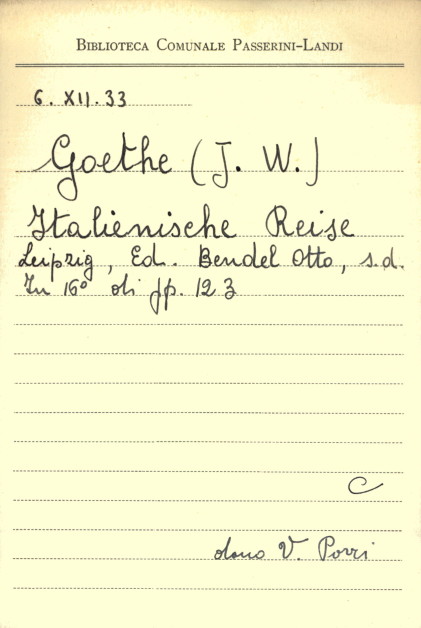 BIBLIOTECA COMUNALE PASSERINI-LANDI
6. XII. 33
Goethe (J. W.)
Italienische Reise
Leipzig, Ed. Bendel Otto, s.d.
In 16° di pp. 123
C
dono V. Porri